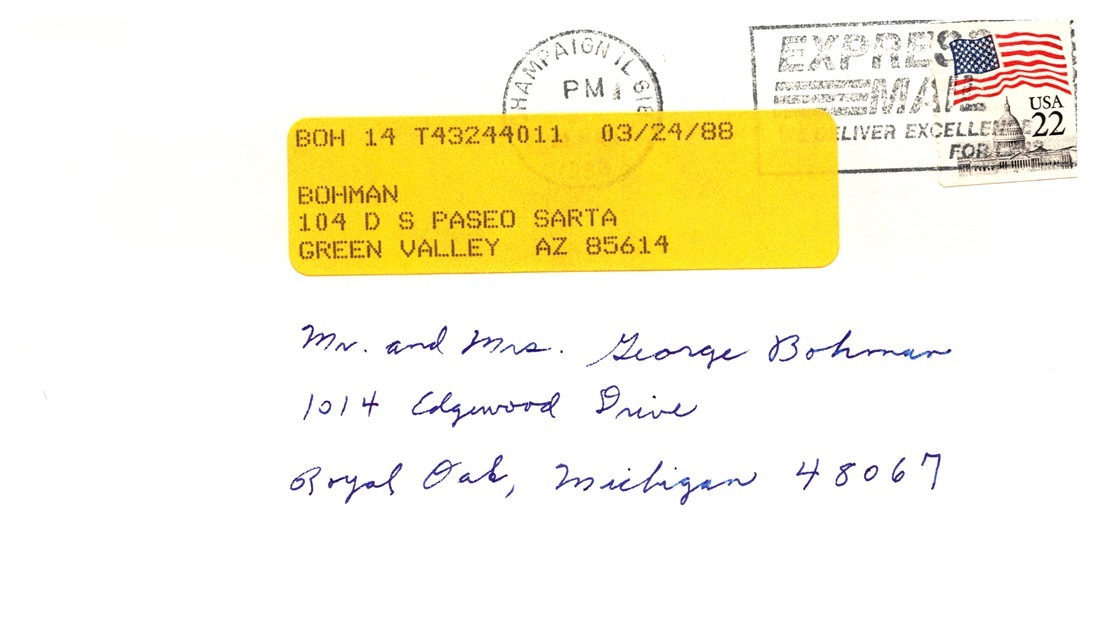 HAMPAIGN IL 618
PM
EXPRESS
MAIL
DELIVER EXCELLENCE
FOR LESS
USA
22
BOH 14 T43244011 03/24/88
BOHMAN
104 D S PASEO SARTA
GREEN VALLEY AZ 85614
Mr. and Mrs. George Bohman
1014 Edgewood Drive
Royal Oak, Michigan 48067